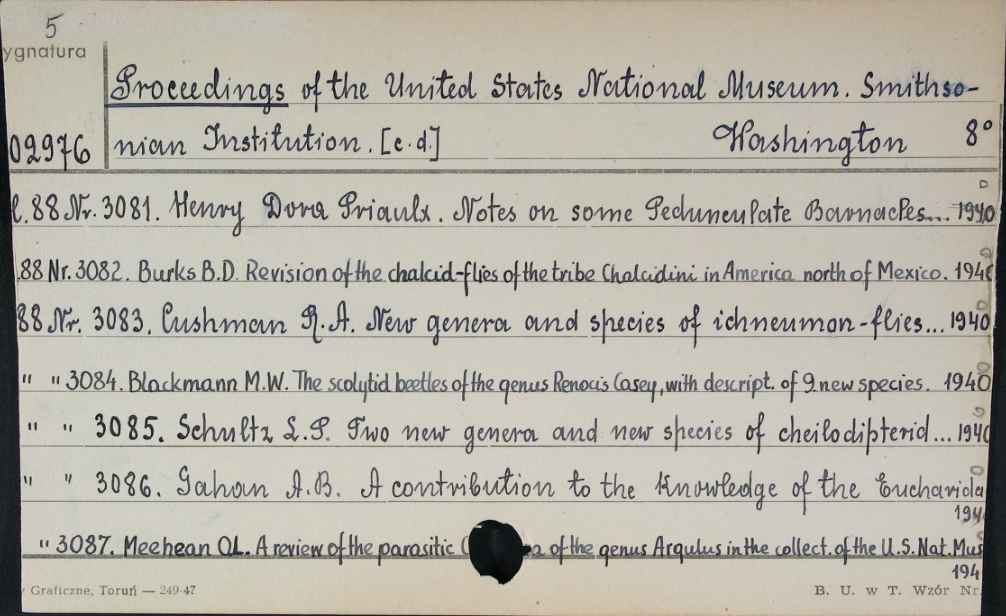 5
ygnatura
Proceedings of the United States National Museum. Smithso-
02976 nian Institution. [c.d.] Washington 8°
t.88 Nr. 3081. Henry Dora Priaulx. Notes on some Pedunculate Barnacles... 1940
88 Nr. 3082. Burks B.D. Revision of the chalcid-flies of the tribe Chalcidini in America north of Mexico. 1940
88 Nr. 3083. Cushman R.A. New genera and species of ichneumon-flies... 1940
" " 3084. Blackmann M.W. The scolytid beetles of the genus Renocis Casey, with descript. of 9 new species. 1940
" " 3085. Schultz L.P. Two new genera and new species of cheilodipterid... 1940
" " 3086. Gahan A.B. A contribution to the knowledge of the Eucharida
194
" 3087. Meehean OL. A review of the parasitic of the genus Argulus in the collect. of the U.S. Nat. Mus
194
Graficzne, Toruń — 249-47 B. U. w T. Wzór Nr.